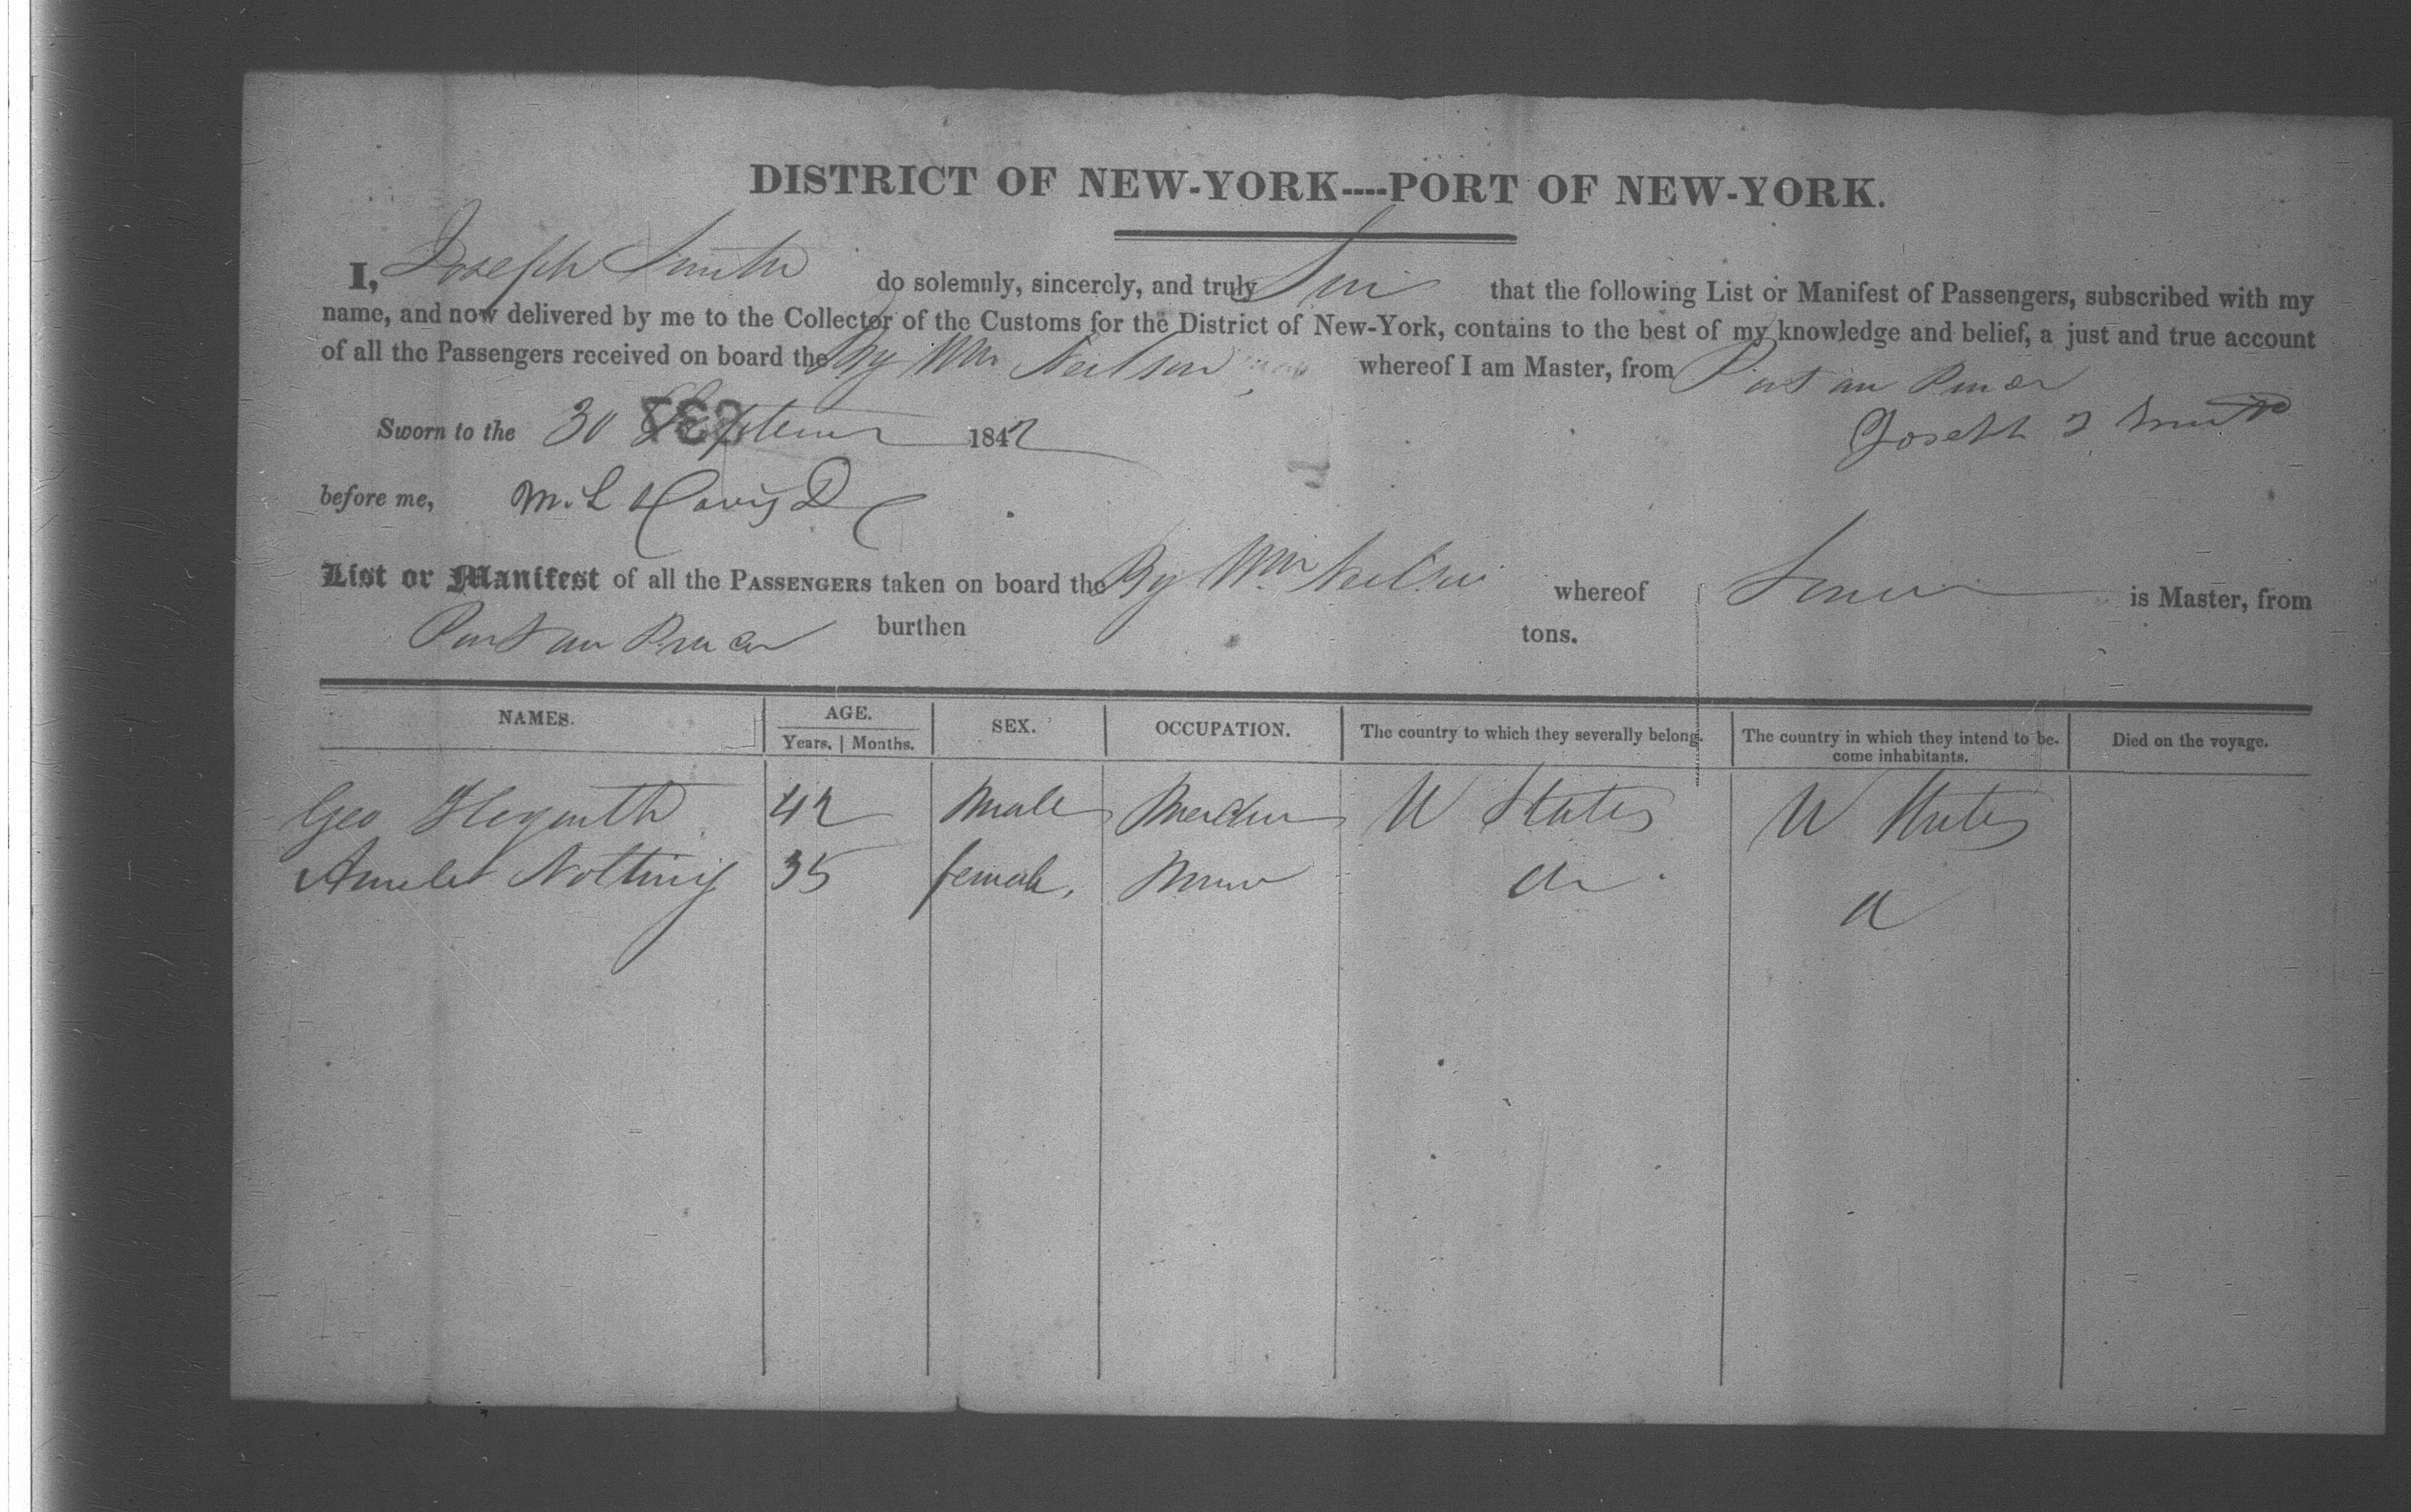 DISTRICT OF NEW-YORK----PORT OF NEW-YORK.
I, Joseph Smith do solemnly, sincerely, and truly that the following List or Manifest of Passengers, subscribed with my
name, and now delivered by me to the Collector of the Customs for the District of New-York, contains to the best of my knowledge and belief, a just and true account
of all the Passengers received on board the Bg Wm Neilson whereof I am Master, from Port au Prince
Sworn to the 30 September 1842 Joseph Smith
before me, M. L Davis D C
List or Manifest of all the PASSENGERS taken on board the Bg Wm Neilson whereof is Master, from
Port au Prince burthen tons.
NAMES. AGE. SEX. OCCUPATION. The country to which they severally belong. The country in which they intend to be-
Years. Months. come inhabitants. Died on the voyage.
Geo 42 male U States U States
Notting 35 female